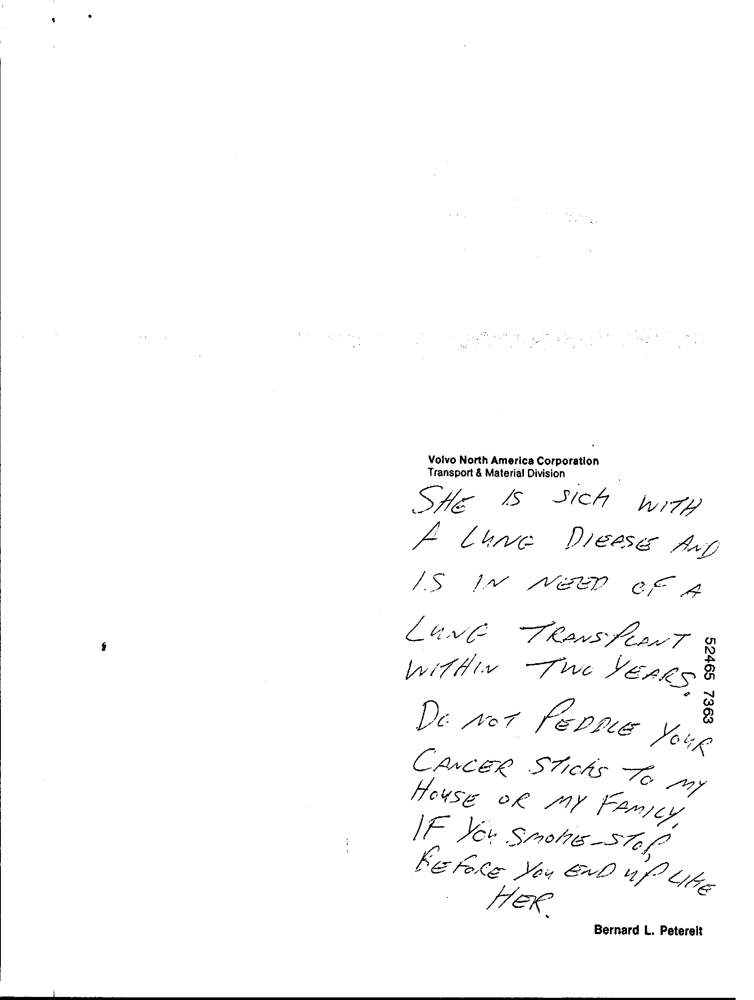 Volvo North America Corporation
Transport & Material Division
SHE IS SICK WITH
A LUNG DIEASE AND
IS IN NEED OF A
LUNG TRANSPLANT
WITHIN TWO YEARS.
DO NOT PEDDLE YOUR
CANCER STICKS TO MY
HOUSE OR MY FAMILY.
IF YOU SMOKE-STOP,
BEFORE YOU END UP LIKE
HER.
Bernard L. Petereit
52465 7363